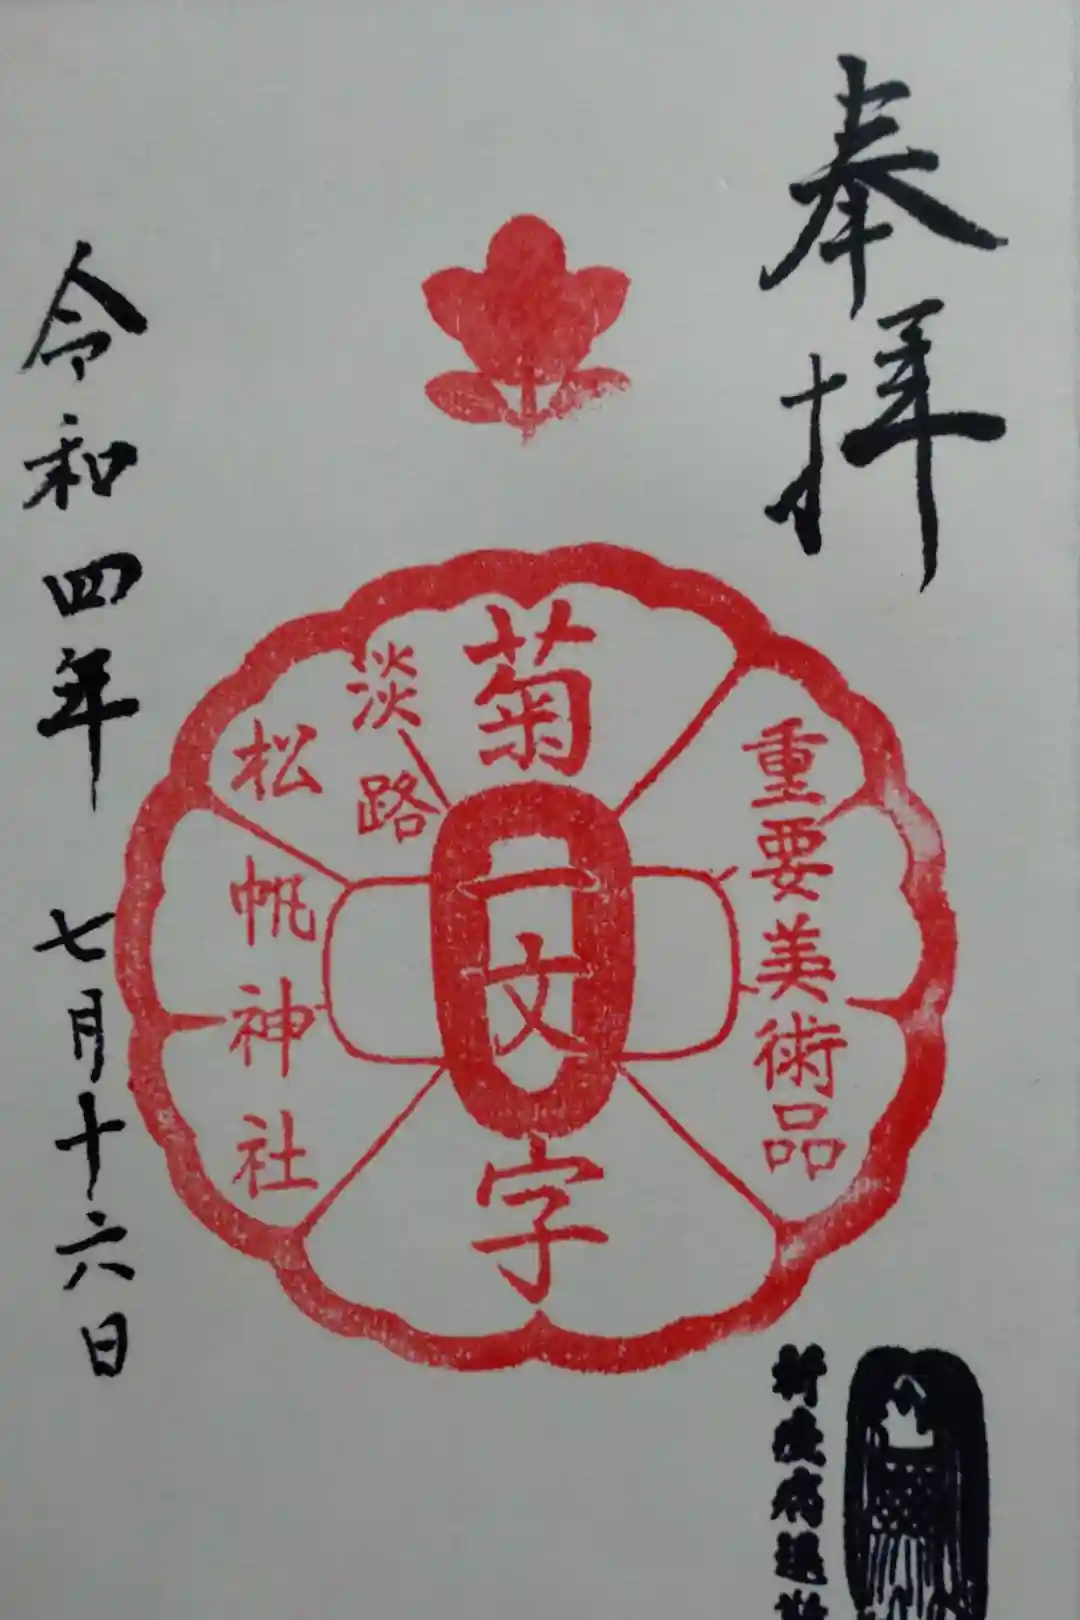 奉拝
重要美術品
菊一文字
淡路
松帆神社
令和四年 七月十六日
祈疫病退散